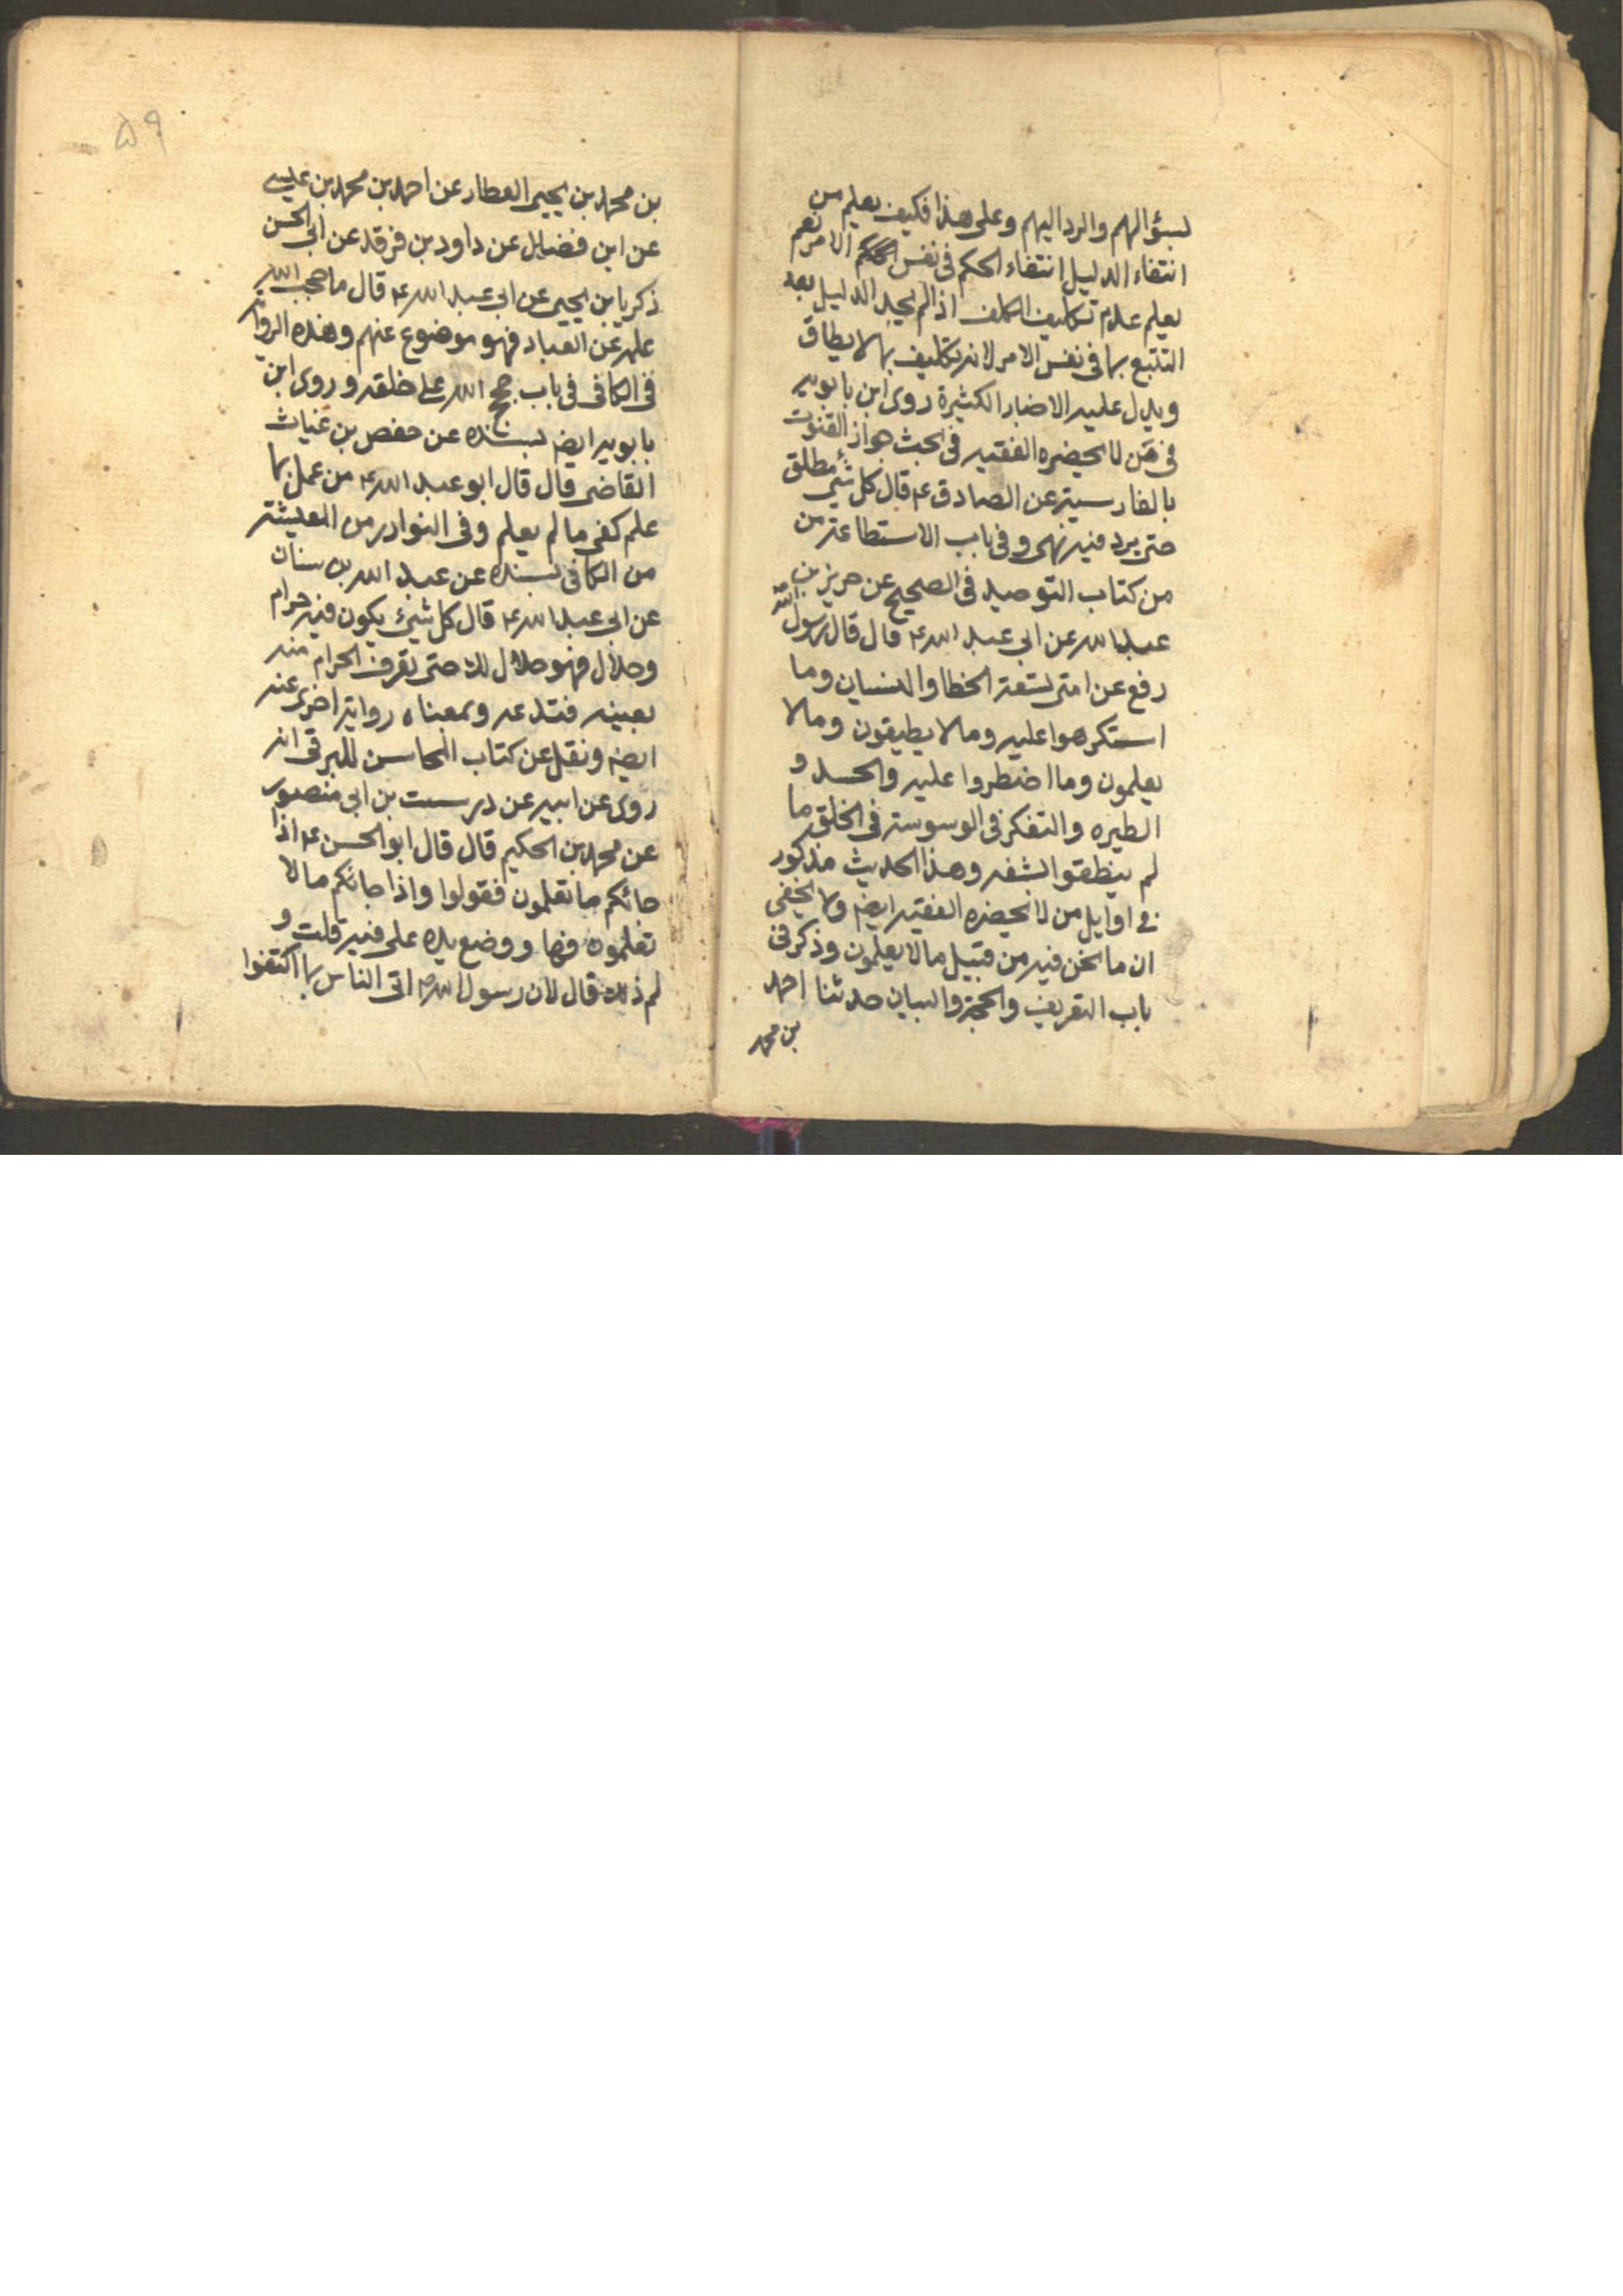 بسؤالهم والرد اليهم وعلى هذا فكيف يعلم من
انتفاء الدليل انتفاء الحكم فى نفس الامر نعم
يعلم عدم تكليف المكلف اذا لم يجد الدليل بعد
التتبع بما فى نفس الامر لانه تكليف بما لا يطاق
ويدل عليه الاخبار الكثيرة روى ابن بابويه
فى من لا يحضره الفقيه فى بحث جواز القنوت
بالفارسية عن الصادق ع قال كل شئ مطلق
حتى يرد فيه نهى وفى باب الاستطاعة من
من كتاب التوحيد فى الصحيح عن حريز بن
عبد الله عن ابى عبد الله ع قال قال رسول الله
رفع عن امتى تسعة الخطا والنسيان وما
استكرهوا عليه وما لا يطيقون وما لا
يعلمون وما اضطروا عليه والحسد و
الطيره والتفكر فى الوسوسة فى الخلق ما
لم ينطقو الشفه وهذا الحديث مذكور
فى اوايل من لا يحضره الفقيه ايضا ولا يخفى
ان ما نحن فيه من قبيل ما لا يعلمون وذكر فى
باب التعريف والحجة والبيان حدثنا احمد
بن محمد
۵۹
بن محمد بن يحيى العطار عن احمد بن محمد بن عيسى
عن ابن فضال عن داود بن فرقد عن ابى الحسن
زكريا بن يحيى عن ابى عبد الله ع قال ما حجب الله
علمه عن العباد فهو موضوع عنهم وهذه الرواية
فى الكافى فى باب حجج الله على خلقه وروى ابن
بابويه ايضا بسنده عن حفص بن غياث
القاضى قال قال ابو عبد الله ع من عمل بما
علم كفى ما لم يعلم وفى النوادر من المعيشة
من الكافى بسنده عن عبد الله بن سنان
عن ابى عبد الله ع قال كل شئ يكون فيه حرام
وحلال فهو حلال لك حتى تعرف الحرام منه
بعينه فتدعه وبمعناه رواية اخرى عنه
ايضا ونقل عن كتاب المحاسن للبرقى انه
روى عن ابيه عن درست بن ابى منصور
عن محمد بن الحكيم قال قال ابو الحسن ع اذا
جائكم ما تعلمون فقولوا واذا جائكم ما لا
تعلمون فها ووضع يده على فيه قلت و
لم ذلك قال لان رسول الله ص اتى الناس بما اكتفوا